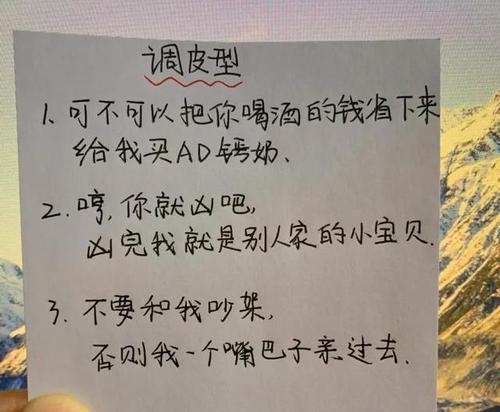 调皮型
1. 可不可以把你喝酒的钱省下来
给我买AD钙奶.
2. 哼,你就凶吧,
凶完我就是别人家的小宝贝.
3. 不要和我吵架,
否则我一个嘴巴子亲过去.